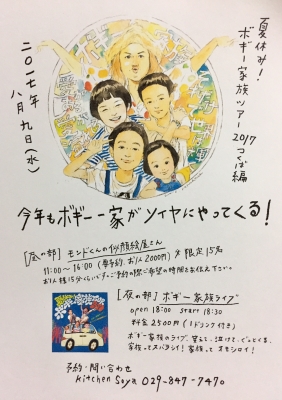 夏休み!
ボギー家族ツアー
2017 つくば編
二〇一七年
八月九日(水)
今年もボギー一家がソイヤにやってくる!
[昼の部] モンドくんの似顔絵屋さん
11:00〜16:00 (要予約 お1人 2000円) 限定15名
[夜の部] ボギー家族ライブ
open 18:00 start 18:30
料金 2500円 (1ドリンク付き)
ボギー家族のライブ。笑えて、泣けて、ぐっとくる。
家族ってスバラシイ! 家族ってオモシロイ!
予約・問い合わせ
Kitchen Soya 029-847-7470